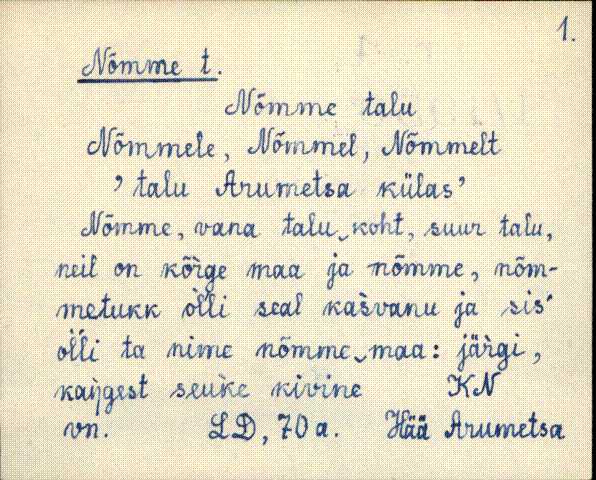 1.
Nõmme t.
Nõmme talu
Nõmmele, Nõmmel, Nõmmelt
’talu Arumetsa külas’
Nõmme, vana talu‿koht, suur talu,
neil on kõrge maa ja nõmme, nõm-
metukk olli seal kasvanu ja sis
olli ta nime nõmme‿maa: järgi,
kangest seuke kivine KN
vn. LD, 70 a. Hää Arumetsa